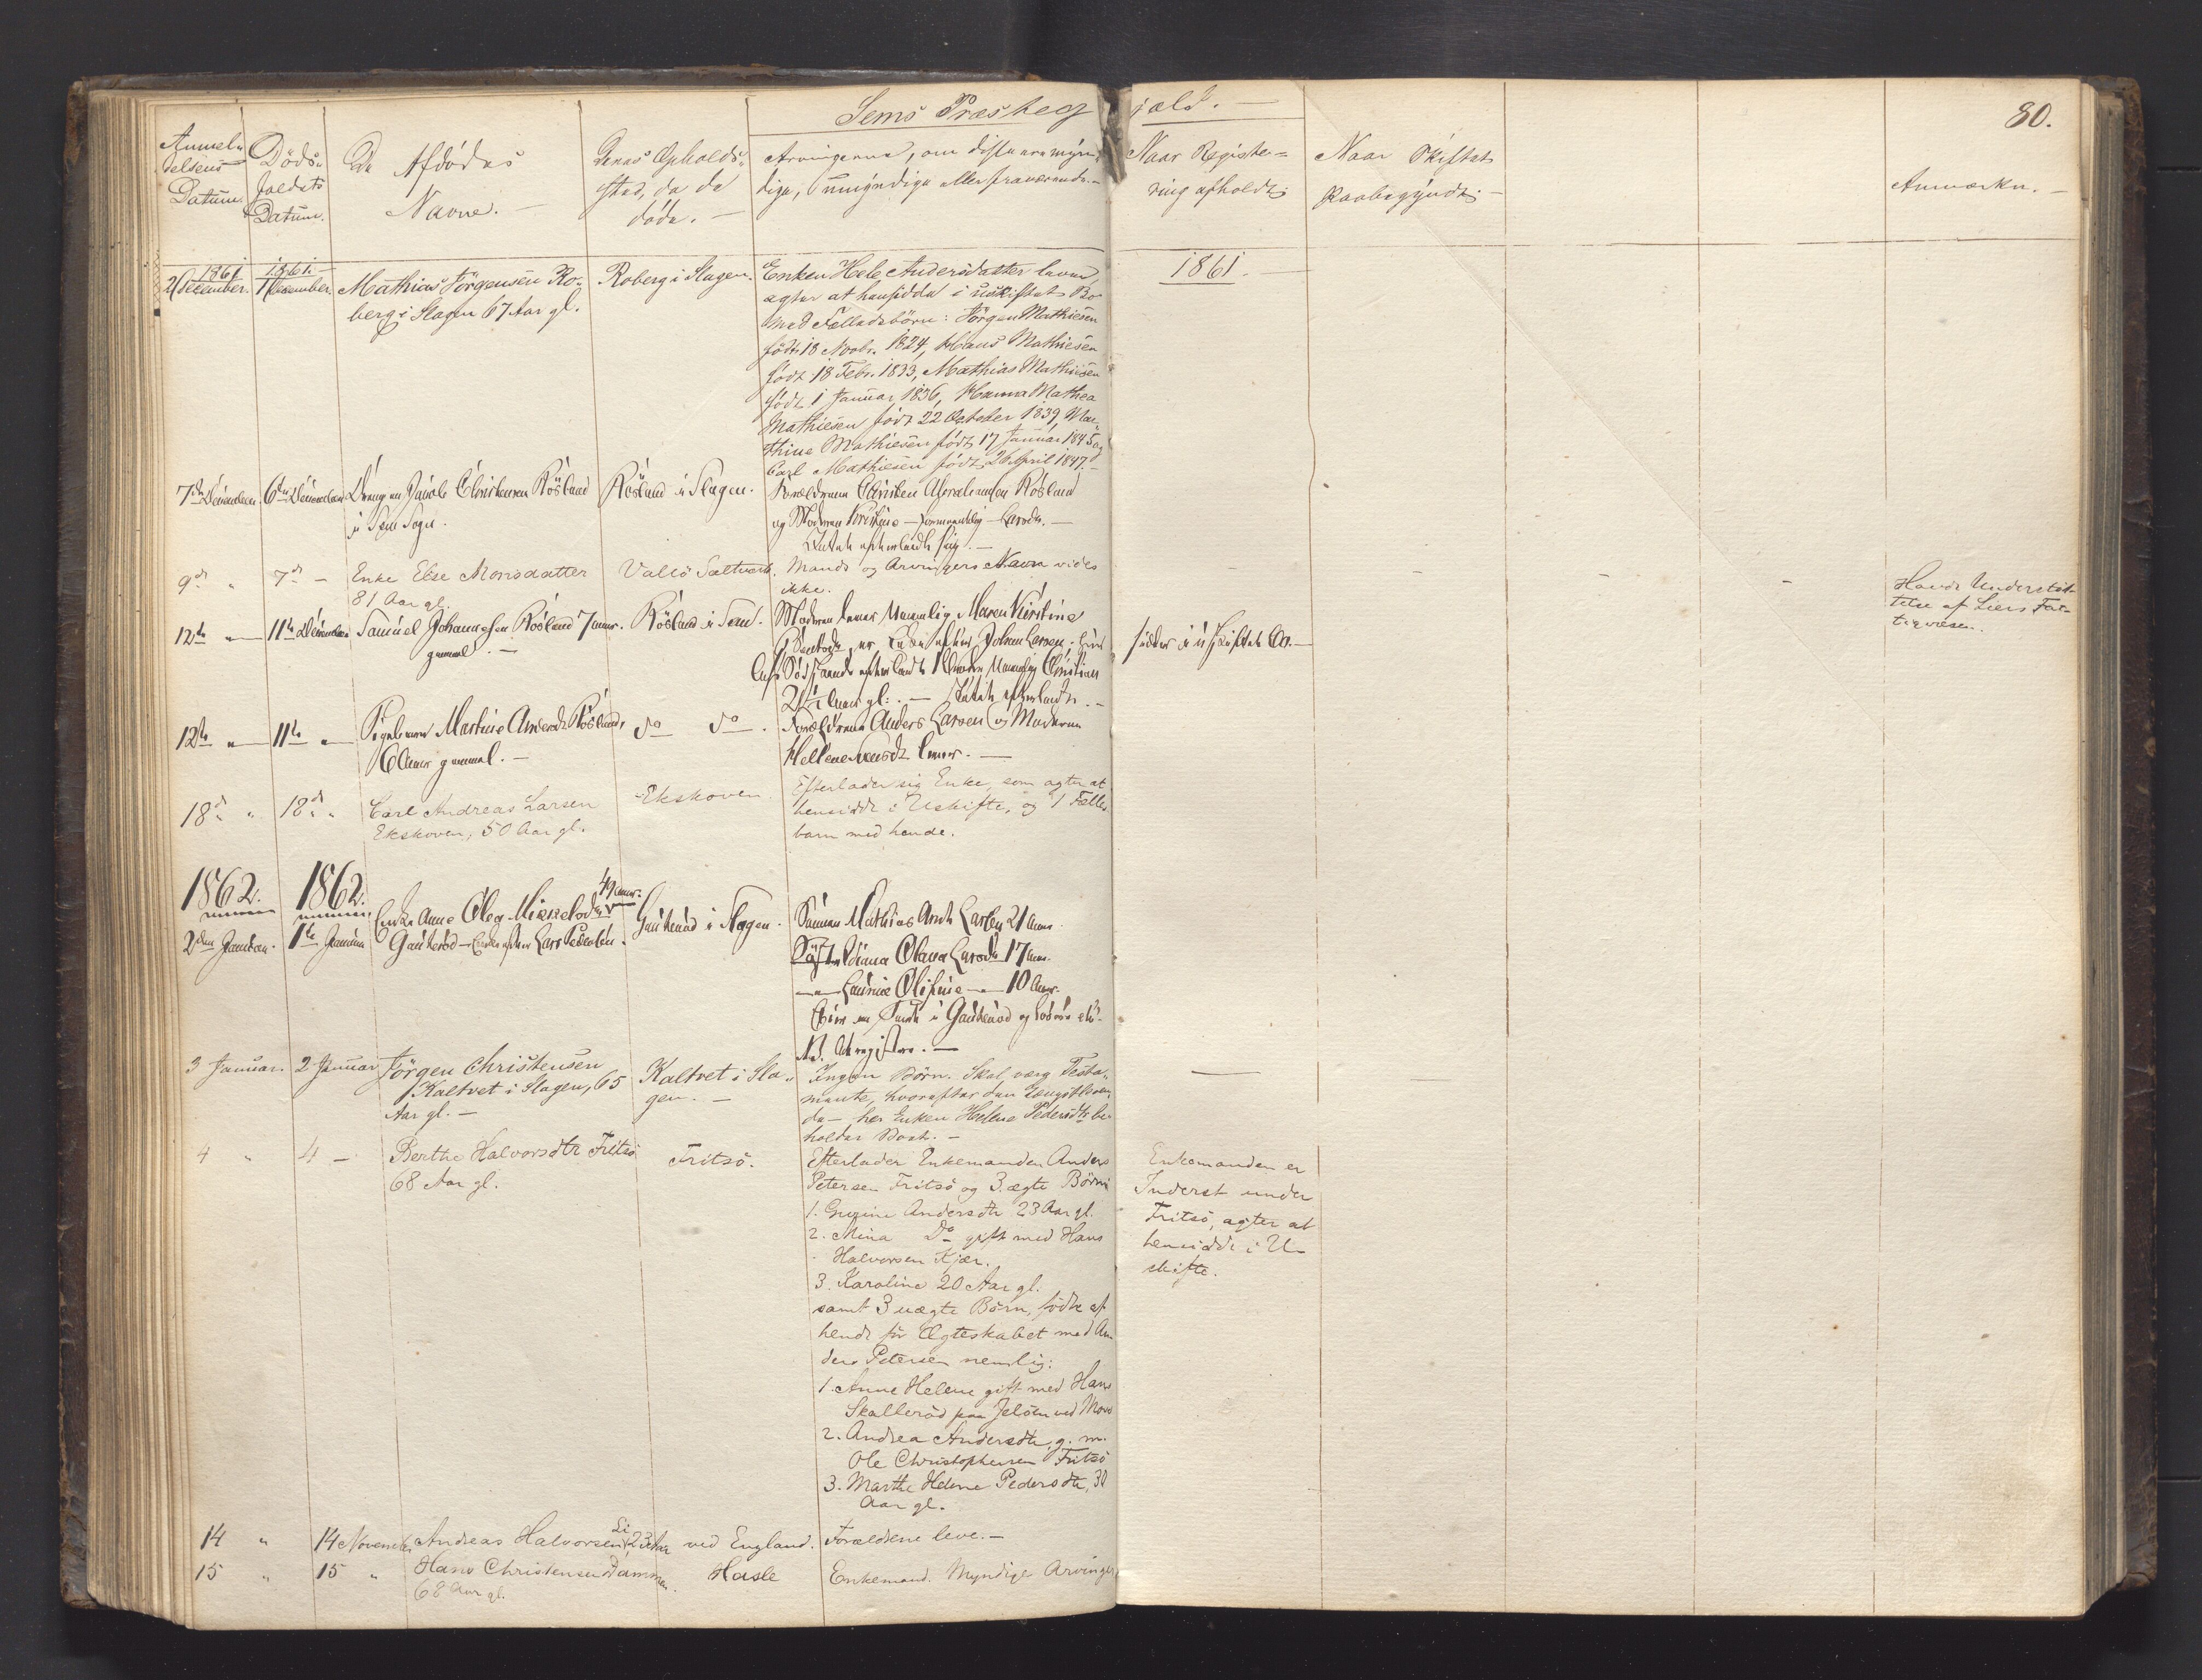 Sems Præstegjæld. —
80.
Anmel-
delsens
Datum.
Døds-
faldets
Datum.
De Afdødes
Navne. —
Deres Opholds-
sted, da de
døde. —
Arvingerne, om disse ere myn-
dige, umyndige eller fraværende. —
Naar Registe-
ring afholdt. —
Naar Skiftet
paabegyndt. —
Anmærkn. —
1861
2 December.
1861.
1 December.
Mathias Jörgensen Ro-
berg i Slagen 67 Aar gl.
Roberg i Slagen.
Enken Hele Andersdatter lever,
agter at hensidde i uskiftet Bo
med Fælledsbörn: Jörgen Mathiesen
født 18 Novbr. 1824, Hans Mathiesen
født 18 Febr. 1833, Mathias Mathiesen
født 1 Januar 1836, Hanna Mathea
Mathiesen født 22 October 1839, Mar-
thine Mathiesen født 17 Januar 1845 og
Carl Mathiesen født 26 April 1847. —
1861. —
7de December
6te December
Drengen Jacob Christensen Rösland
i Sem Sogn.
Rösland i Slagen.
Forældrene Christen Abrahamsen Rösland
og Moderen Kirstine Larsdt. —
efterladt sig. —
9de "
7de —
Enke Else Monsdatter
81 Aar gl.
Vallö Saltværk.
Mands og Arvingers Navn vides
ikke.
Havde Understöt-
telse af Liers Fat-
tigvæsen.
12te "
11te December
Samuel Johannesen Rösland 7 Aar
gammel. —
Rösland i Sem.
Moderen lever Navnlig Maren Kirstine
er Enke efter Johan Larsen,
sidder i uskiftet Bo. —
efterladt 1 Broder Navnlig Christian
2½ Aar gl. — efterladt. —
12te "
11te "
Pigebarn Martine Andersdt. Rösland,
6 Aar gammel. —
do do.
Forældrene Anders Larsen og Moderen
Hellene lever. —
18de "
18de "
Carl Andreas Larsen
Ekskoven, 50 Aar gl.
Ekskoven.
Efterlader sig Enke, som agter at
hensidde i Uskifte, og 1 Fælles-
barn med hende.
1862.
2den Januar.
1862.
1te Januar
49 Aar.
Enke Anne Olea Mikkelsdtr
Gaukeröd — Enke efter Lars Pedersen.
Gaukeröd i Slagen.
Sönnen Mathias Larsen 21 Aar
Olava Larsdt. 17 Aar.
— " — Laurine Olefine — " — 10 Aar.
i Gaukeröd og
NB. At registere. —
3 Januar.
2 Januar
Jörgen Christensen
Kaltvet i Slagen, 65
Aar gl. —
Kaltvet i Sla-
gen. —
Ingen Börn. Skal være Testa-
mente, hvorefter den Længstleven-
de — her Enken Helene Pedersdtr be-
holder Boet. —
4 "
4 —
Berthe Halvorsdtr Fritsö
68 Aar gl.
Fritsö.
Efterlader Enkemanden Anders
Petersen Fritsö og 3 ægte Börn:
1. Gurine Andersdtr 23 Aar gl.
2. Mina Do gift med Hans
Halvorsen Kjær.
3. Karoline 20 Aar gl.
samt 3 uægte Börn, födte af
hende för Ægteskabet med An-
ders Petersen nemlig:
1. Anne Helene gift med Hans
Skalleröd paa Jelöen ved Moss
2. Andrea Andersdtr, g. m.
Ole Christophersen Fritsö
3. Marthe Helene Pedersdtr, 30
Aar gl.
Enkemanden er
Inderst under
Fritsö, agter at
hensidde i U-
skifte.
14 "
14 November
Andreas Halvorsen Li, 23 Aar
ved England.
Forældrene leve. —
15 "
15 "
Hans Christensen Dammen.
68 Aar gl.
Hasle
Enkemand. Myndige Arvinger